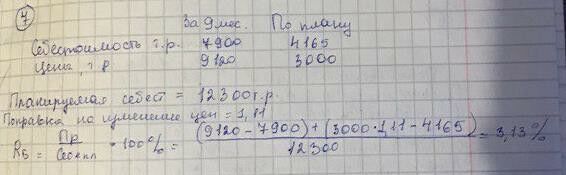 7
За 9 мес. По плану
Себестоимость т.р. 7900 4165
Цены, т.р 9120 3000
Планируемая себест = 12300 т.р.
Поправка на изменение цен = 1,11
Rб = Пр / Себ пл · 100% = (9120 - 7900) + (3000·1,11 - 4165) / 12300 = 3,13%